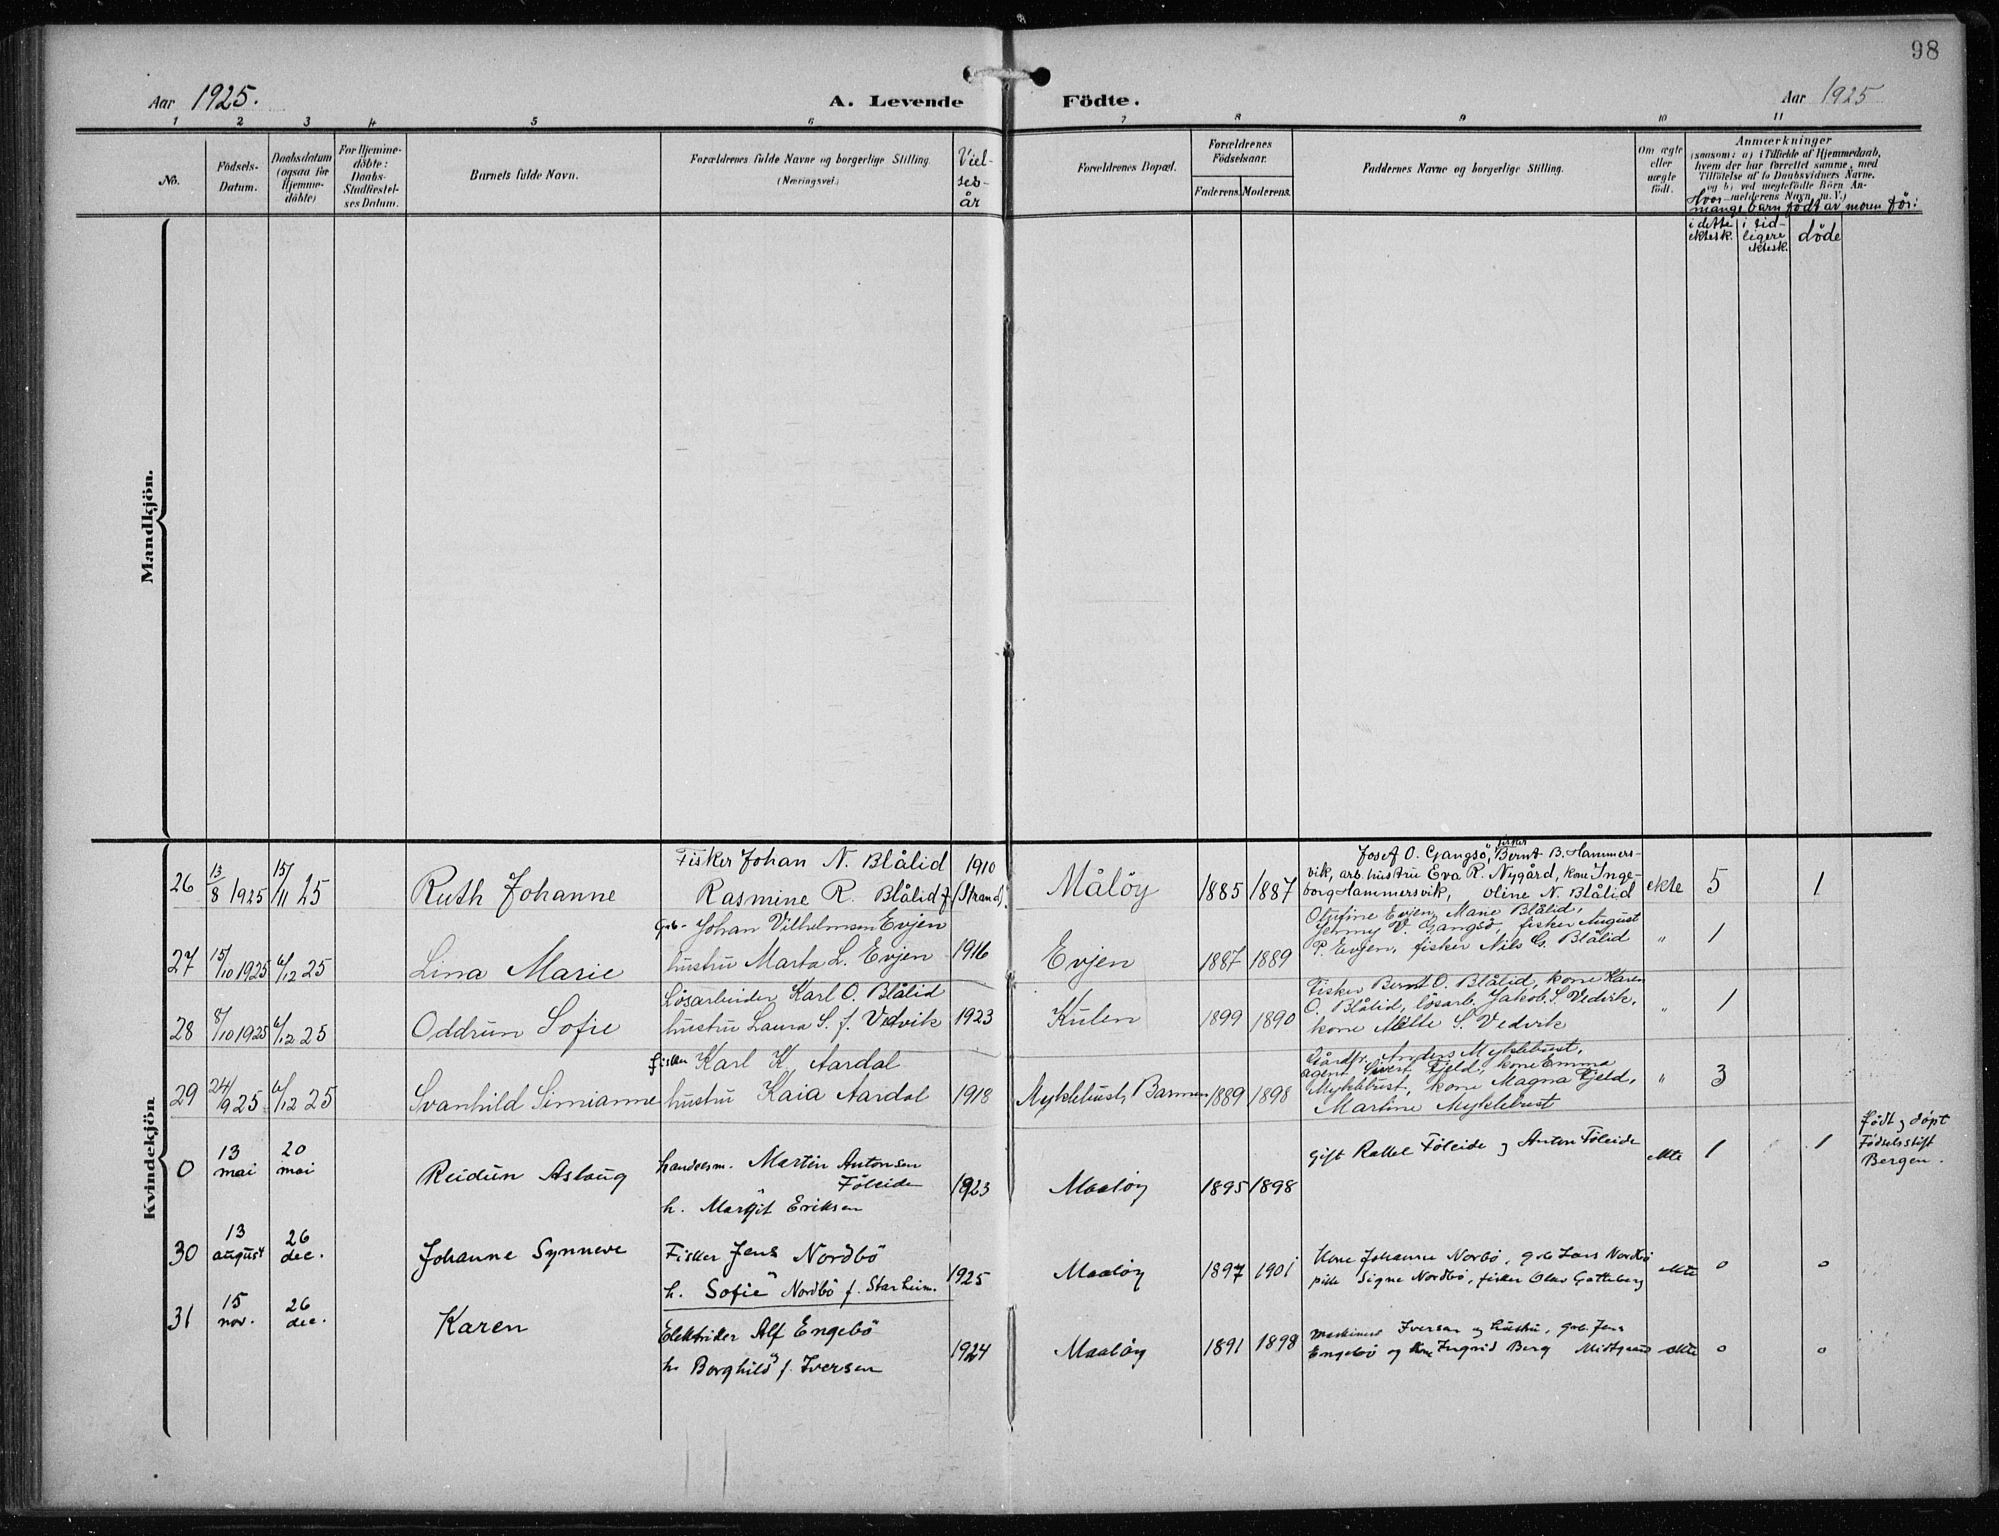 98
Aar 1925.
A. Levende Födte.
Aar 1925
1 2 3 4 5 6 7 8 9 10 11
No.
Födsels-
Datum.
Daabsdatum
(ogsaa for
Hjemme-
döbte)
For Hjemme-
döbte:
Daabs-
Stadfæstel-
ses Datum.
Barnets fulde Navn.
Forældrenes fulde Navne og borgerlige Stilling.
(Næringsvei.)
Viel-
ses-
år
Forældrenes Bopæl.
Forældrenes
Födselsaar.
Faderens. Moderens.
Faddernes Navne og borgerlige Stilling.
Om ægte
eller
uægte
født.
Anmærkninger
(saasom: a) i Tilfælde af Hjemmedaab,
hvem der har forrettet samme, med
Tilföielse af to Daabsvidners Navne.
og b) ved uægtefödte Börn An-
melderens Navn, m. V.)
Hvor
mange barn født av moren før:
i dette
ektesk.
i tid-
ligere
ektesk.
døde
Mandkjön.
Kvindekjön
26
13/8 1925
15/11 25
Ruth Johanne
Fisker Johan N. Blålid
Rasmine R. Blålid f.
1910
(Strand).
Måløy
1885 1887
Josef O. Gangsø, fisker Bernt B. Hammers-
vik, arb. hustru Eva R. Nygård, kone Inge-
borg Hammersvik, Oline N. Blålid
ekte
5
1
27
15/10 1925
6/12 25
Lina Marie
Gbr. Johan Vilhelmsen Evjen
hustru Marta L. Evjen
1916
Evjen
1887 1889
Evjen, Marie Blålid,
Jenny V. Gangsø, fisker August
P. Evjen, fisker Nils G. Blålid
"
1
28
8/10 1925
6/12 25
Oddrun Sofie
Løsarbeider Karl O. Blålid
hustru Laura S. f. Vedvik
1923
Kulen
1899 1890
Fisker Bernt O. Blålid, kone Karen
O. Blålid, løsarb. Jakob S. Vedvik,
kone Milli S. Vedvik
"
1
29
24/9 25
6/12 25
Svanhild Simianne
fisker Karl K. Aardal
hustru Kaia Aardal
1918
Myklebust, Barmen
1889 1898
Gårdbr. Anders Myklebust,
agent Sivert Fjeld, kone Emma
Myklebust, kone Magna Fjeld,
Martine Myklebust
"
3
0
13
mai
20
mai
Reidun Aslaug
handelsm. Martin Antonsen
Føleide
h. Margit Eriksen
1923
Maaløy
1895 1898
Gift Rakel Føleide og Anton Føleide
ekte
1
1
Født og døpt
Fødselsstift
Bergen.
30
13
august
26
dec.
Johanne Synneve
Fisker Jens Nordbö
h. Sofie Nordbö f. Starheim.
1925
Maaløy
1897 1901
Kone Johanne Norbö, gbr. Lars Nordbö
pike Signe Nordbö, fisker Olav Gotteberg
ekte
0
0
31
15
nov.
26
dec.
Karen
Elektriker Alf Engebö
h. Borghild f. Iversen
1924
Maaløy
1891 1898
Maskinist Iversen og hustru, gbr. Jens
Engebö og kone Ingrid Berg Midtgaard
ekte
0
0